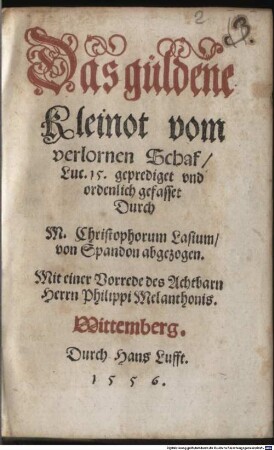 2
Das güldene
Kleinot vom
verlornen Schaf/
Luc. 15. geprediget vnd
ordenlich gefasset
Durch
M. Christophorum Lasium/
von Spandon abgezogen.
Mit einer Vorrede des Achtbarn
Herrn Philippi Melanthonis.
Wittemberg.
Durch Hans Lufft.
1 5 5 6.